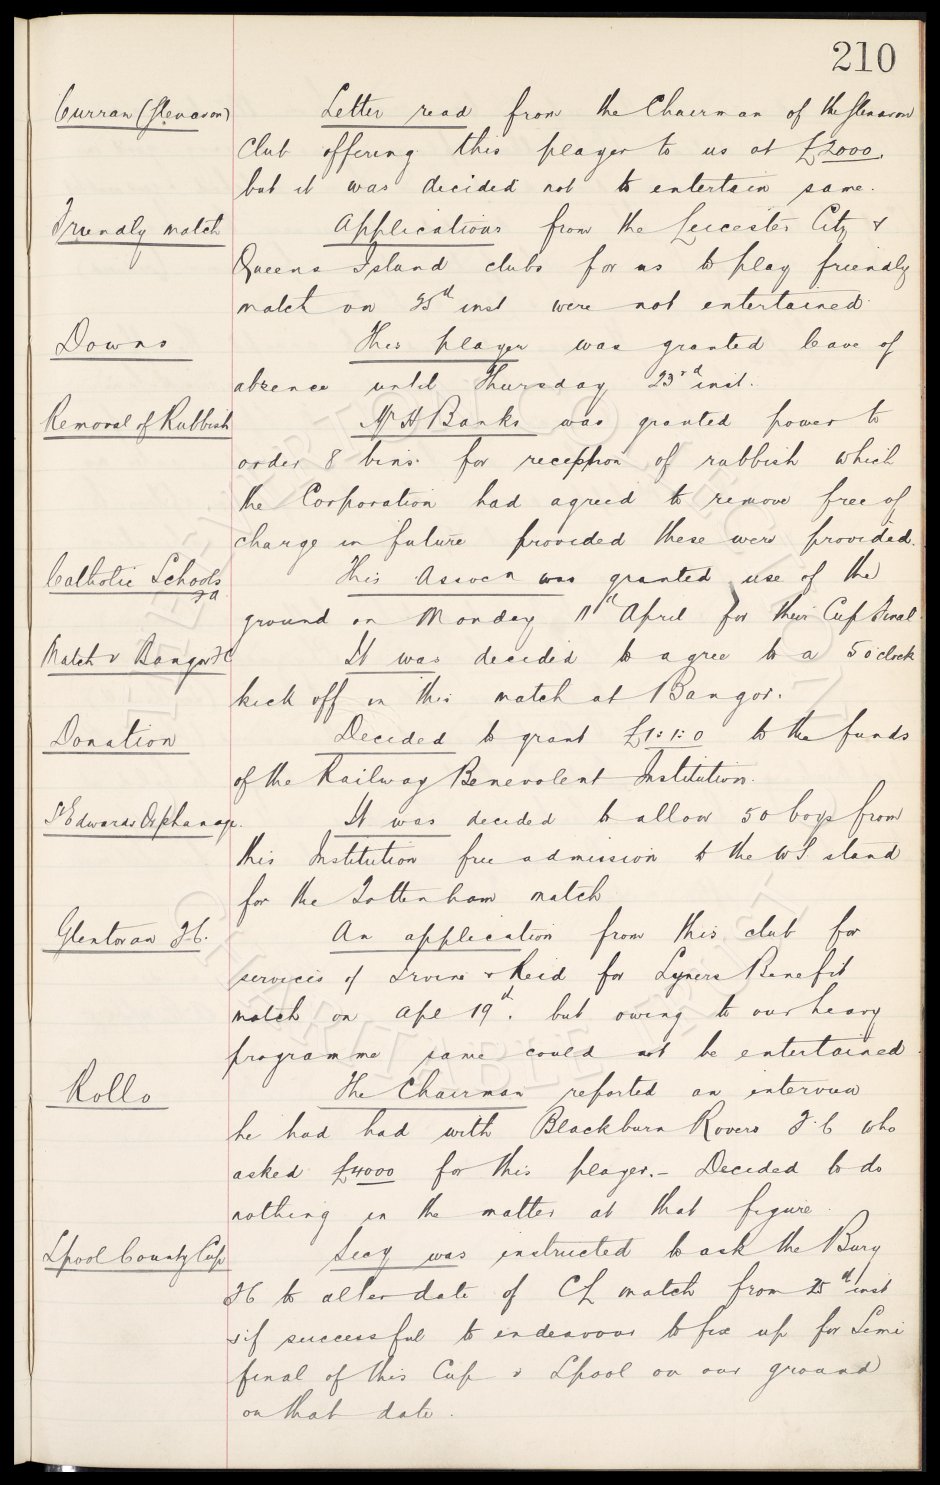 210
Curran (Glenavon) Letter read from the Chairman of the Glenavon
Club offering this player to us at £2000,
but it was decided not to entertain same.
Friendly match Applications from the Leicester City &
Queens Island clubs for us to play friendly
match on 25th inst were not entertained.
Downs This player was granted leave of
absence until Thursday 23rd inst.
Removal of Rubbish Mr H Banks was granted power to
order 8 bins for reception of rubbish which
the Corporation had agreed to remove free of
charge in future provided these were provided.
Catholic Schools This Assocn was granted use of the
FA
ground on Monday 11th April for their Cup Final
Match v Bangor FC It was decided to agree to a 5 o'clock
kick off in this match at Bangor.
Donation Decided to grant £1:1:0 to the funds
of the Railway Benevolent Institution.
St Edwards Orphanage. It was decided to allow 50 boys from
this Institution free admission to the WS stand
for the Tottenham match
Glentoran FC. An application from this club for
services of Irvine & Reid for Lyners Benefit
match on Apl 19th. but owing to our heavy
programme same could not be entertained.
Rollo The Chairman reported an interview
he had had with Blackburn Rovers F.C who
asked £4000 for this player. – Decided to do
nothing in the matter at that figure.
Lpool County Cup Secy was instructed to ask the Bury
FC to alter date of CL match from 25th inst
& if successful to endeavour to fix up for Semi
final of this Cup v Lpool on our ground
on that date.
EVERTON COLLECTION
CHARITABLE TRUST